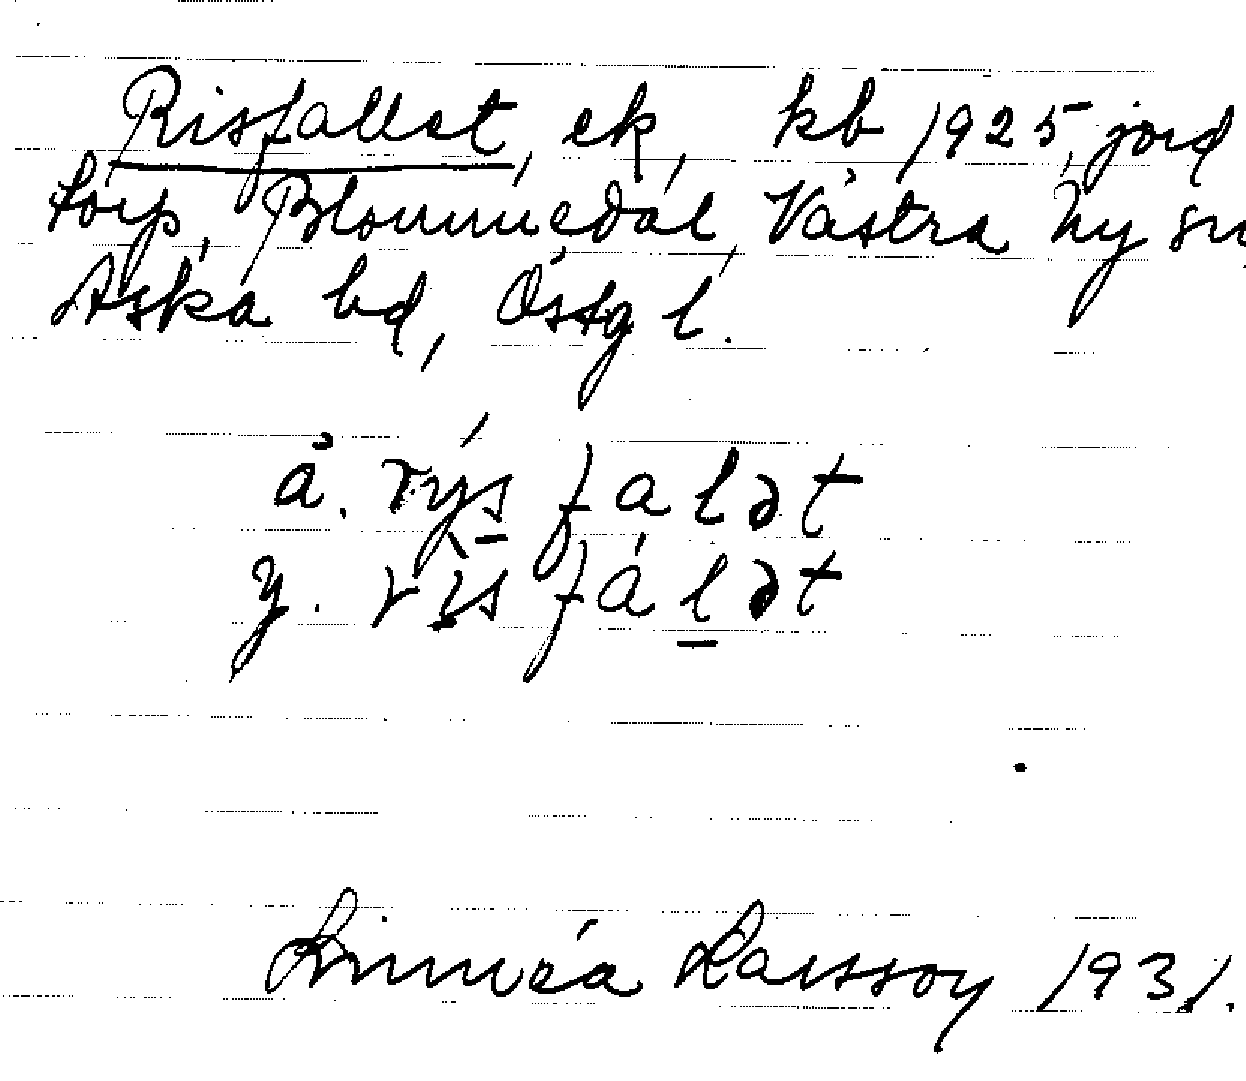 Risfallet, ek, kb 1925, jord
torp, Blommedal, Västra Ny sn,
Aska hd, Östg l.
ä. rýsfalət
y. rısfálət
Linnéa Larsson 1931.